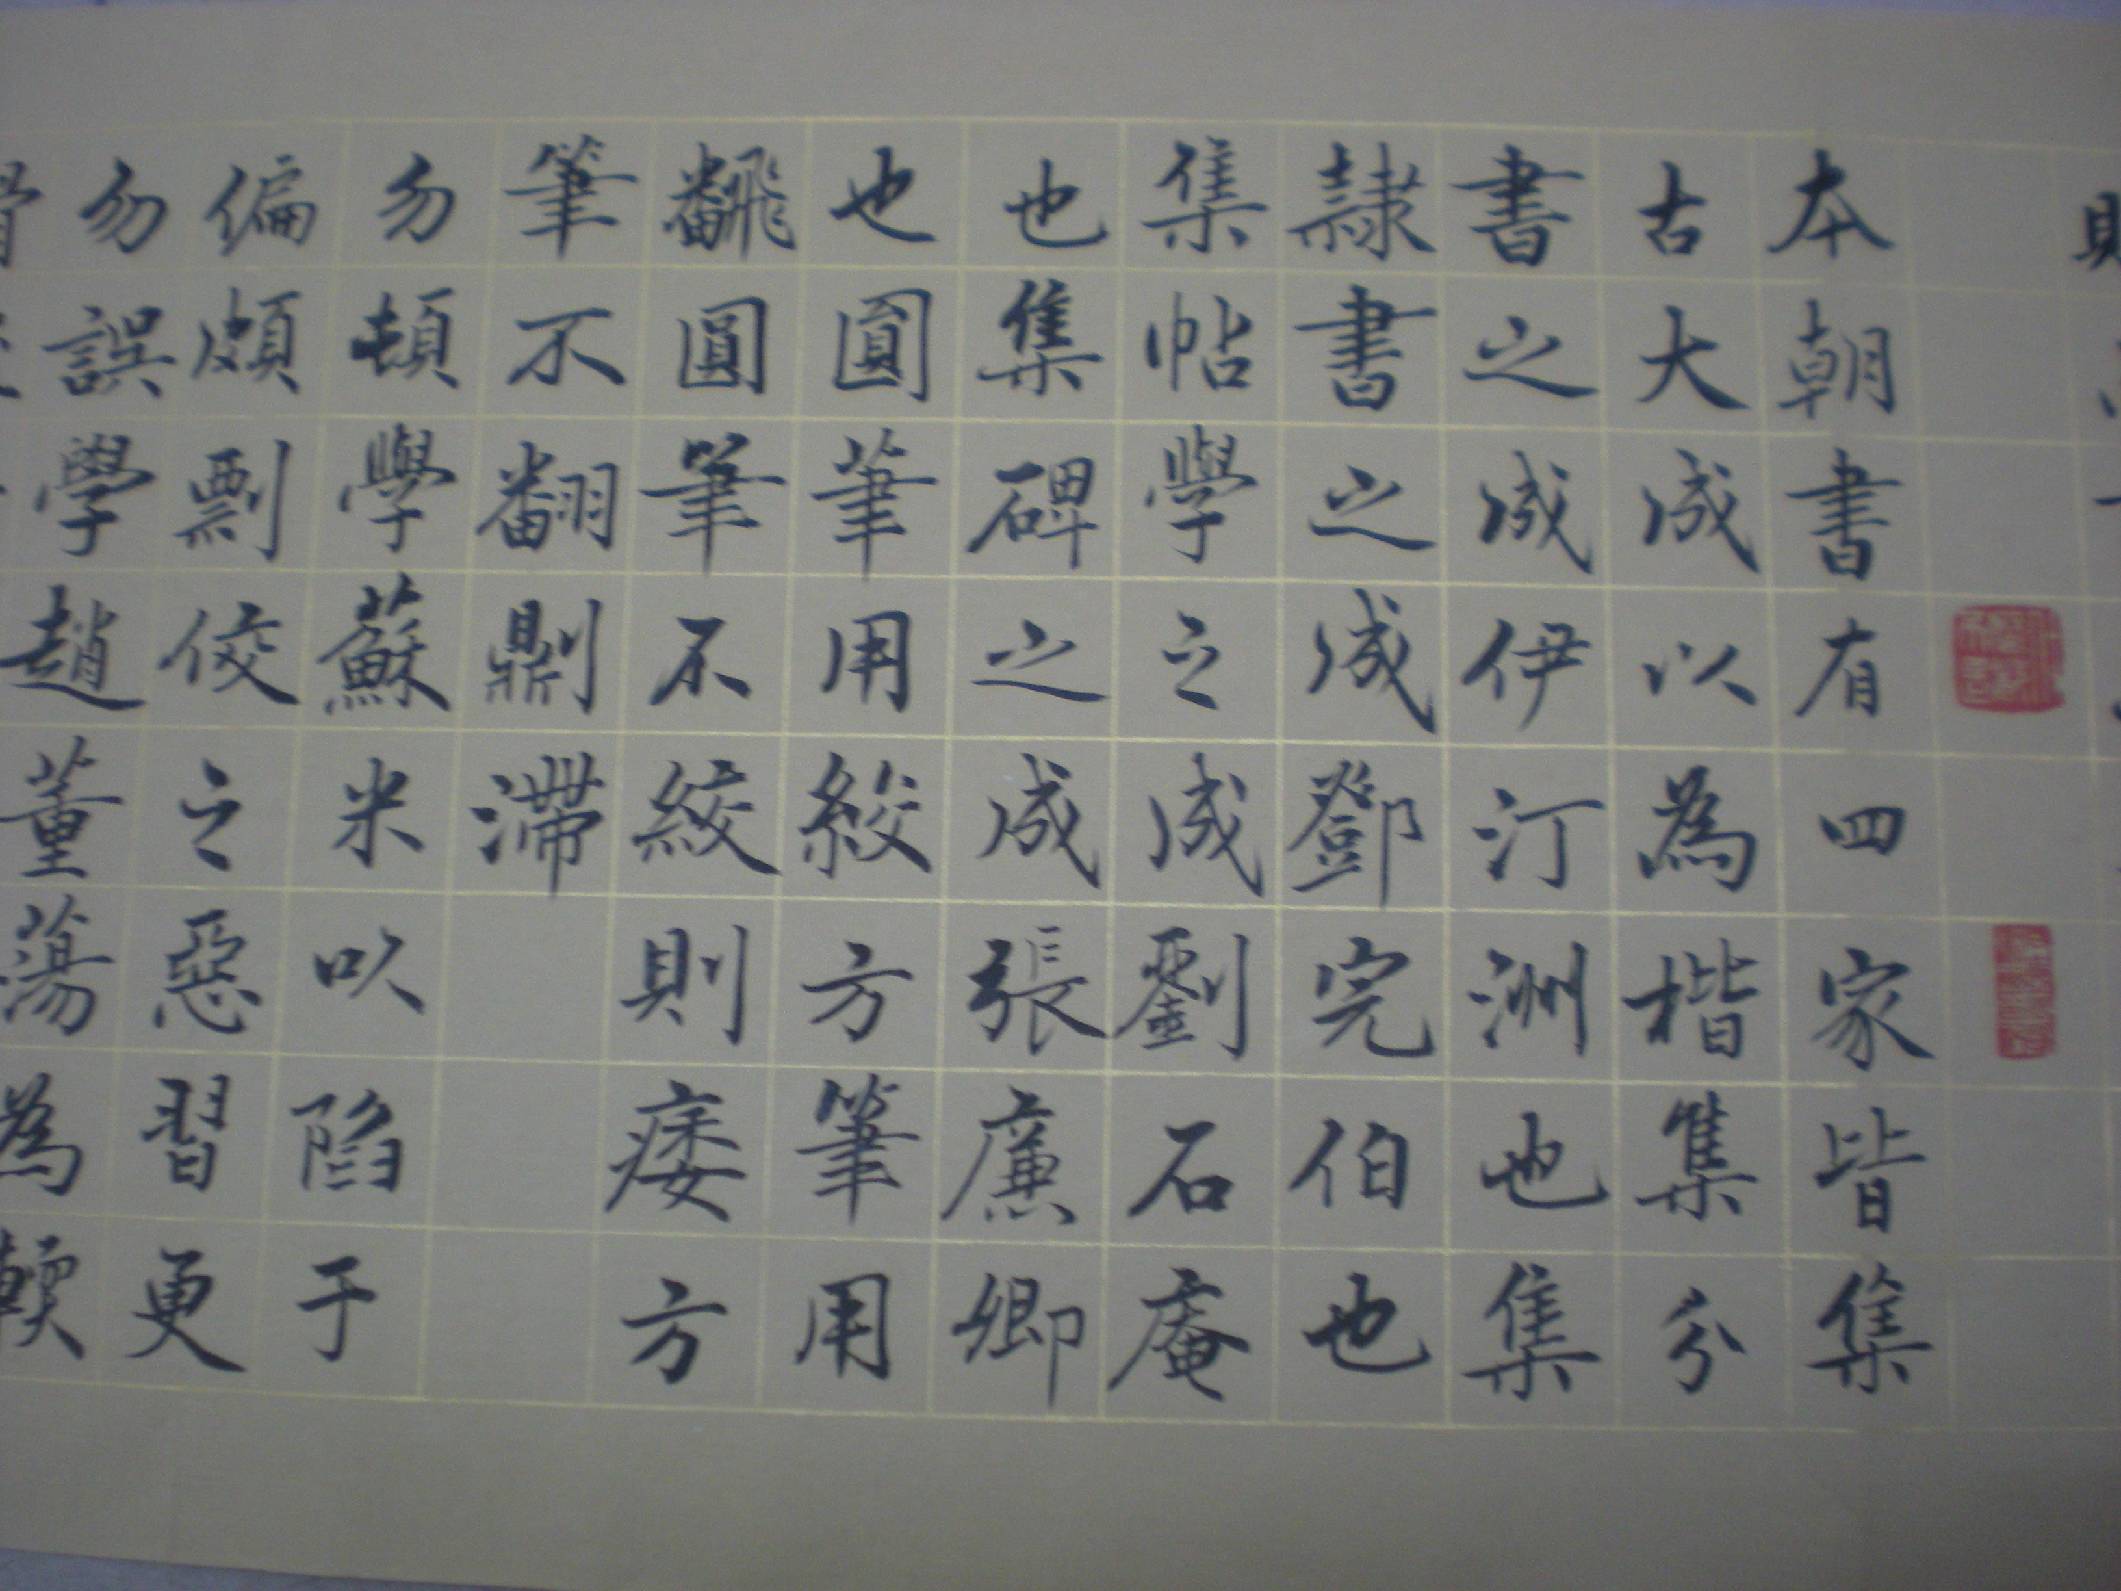 本朝書有四家皆集
古大成以為楷集分
書之成伊汀洲也集
隸書之成鄧完伯也
集帖學之成劉石庵
也集碑之成張廉卿
也圓筆用絞方筆用
飜圓筆不絞則痿方
筆不翻則滯
勿頓學蘇米以陷于
偏頗剽佼之惡習更
勿誤學趙董蕩為軟